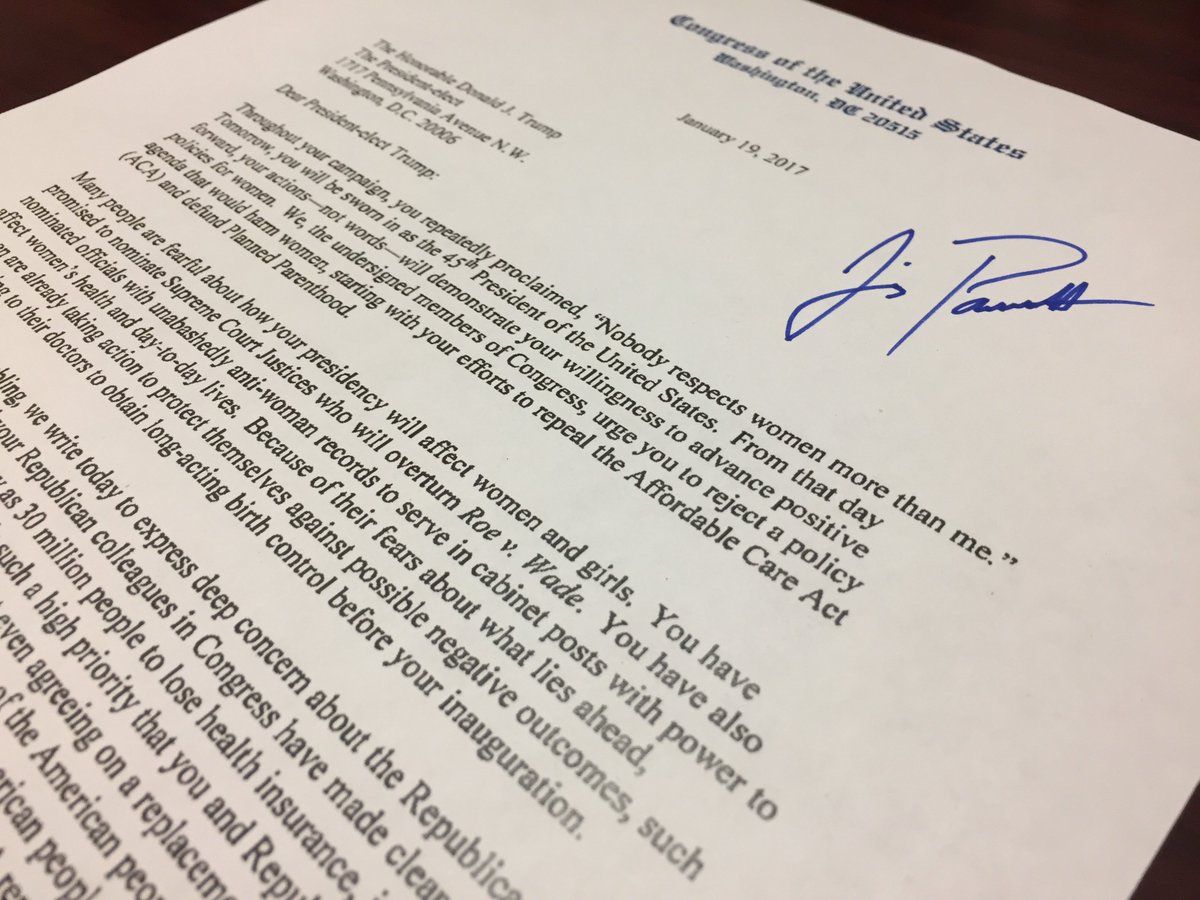 Congress of the United States
Washington, DC 20515
January 19, 2017
The Honorable Donald J. Trump
The President-elect
1717 Pennsylvania Avenue N.W.
Washington, D.C. 20006
Dear President-elect Trump:
Throughout your campaign, you repeatedly proclaimed, “Nobody respects women more than me.”
Tomorrow, you will be sworn in as the 45th President of the United States. From that day
forward, your actions—not words—will demonstrate your willingness to advance positive
policies for women. We, the undersigned members of Congress, urge you to reject a policy
agenda that would harm women, starting with your efforts to repeal the Affordable Care Act
(ACA) and defund Planned Parenthood.
Many people are fearful about how your presidency will affect women and girls. You have
promised to nominate Supreme Court Justices who will overturn Roe v. Wade. You have also
nominated officials with unabashedly anti-woman records to serve in cabinet posts with power to
affect women's health and day-to-day lives. Because of their fears about what lies ahead,
en are already taking action to protect themselves against possible negative outcomes, such
ing to their doctors to obtain long-acting birth control before your inauguration.
bling, we write today to express deep concern about the Republica
your Republican colleagues in Congress have made clear
as 30 million people to lose health insurance,
such a high priority that you and Repub
even agreeing on a replaceme
of the American peo
erican people